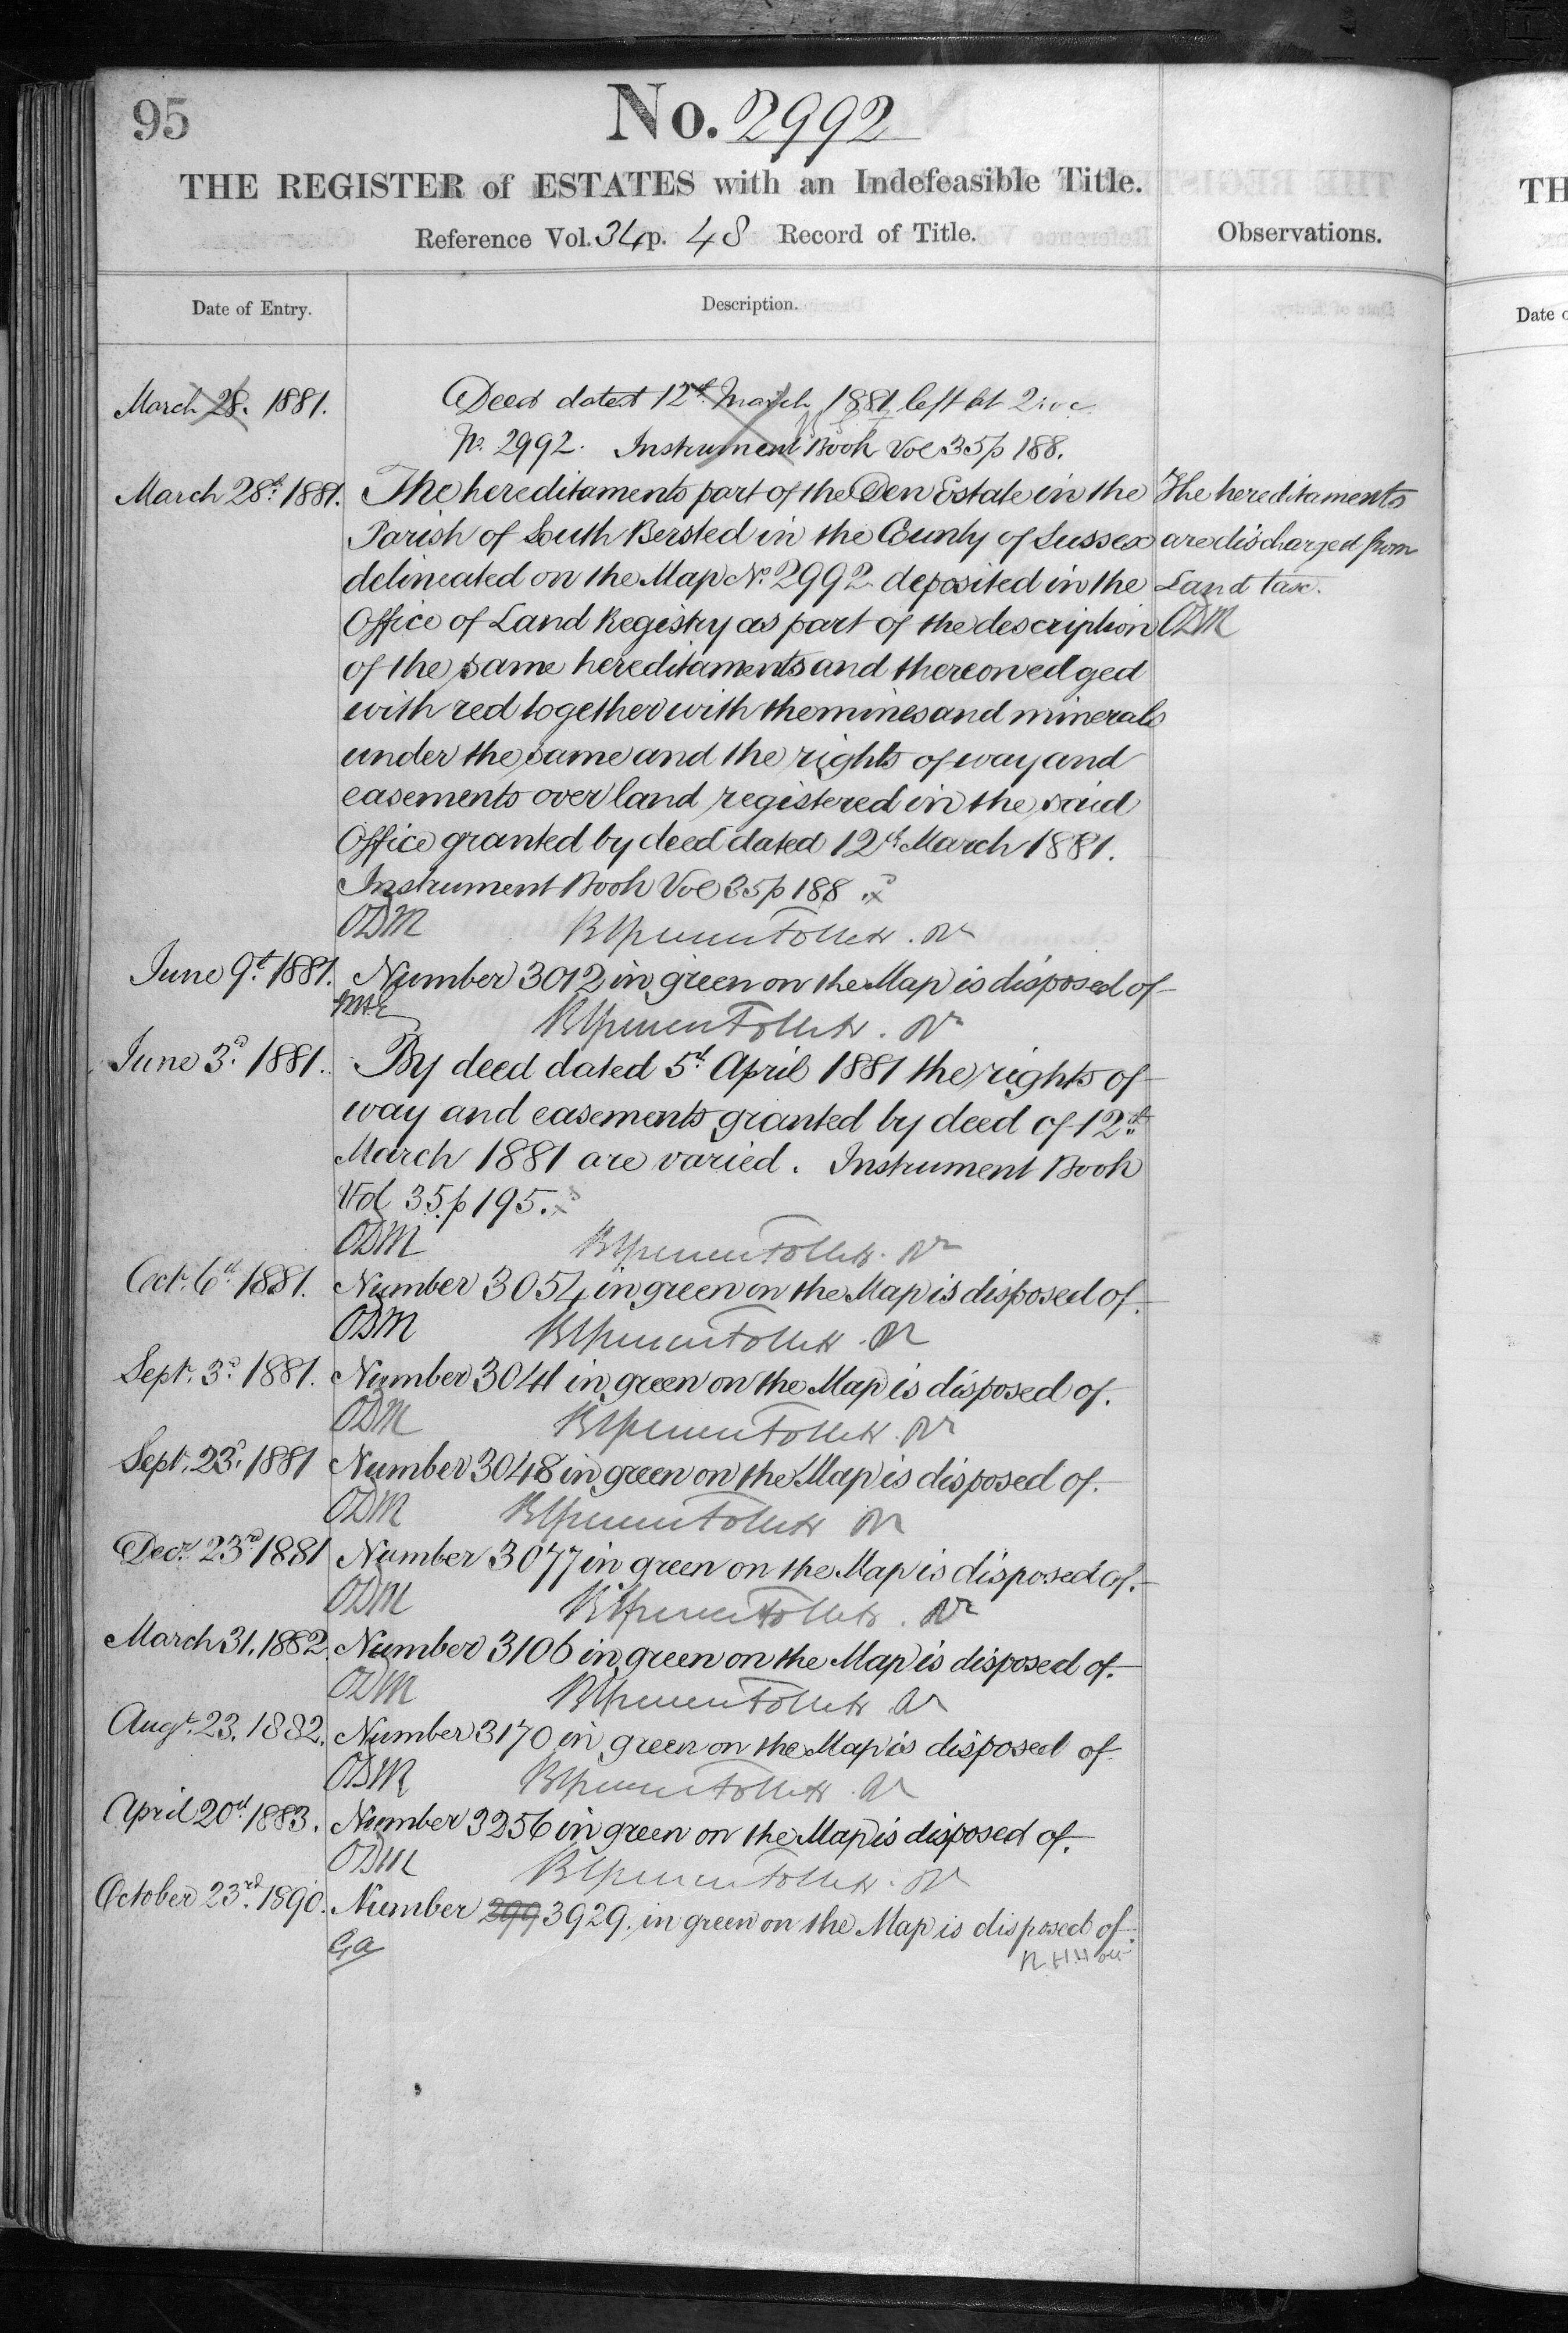 95
No. 2992
THE REGISTER of ESTATES with an Indefeasible Title.
Reference Vol. 34 p. 48 Record of Title.
Observations.
Date of Entry.
Description.
March 28. 1881.
Deed dated 12th March 1881 left at
No. 2992. Instrument Book Vol 35 p 188.
March 28th 1881.
The hereditaments part of the Den Estate in the
Parish of South Bersted in the County of Sussex
delineated on the Map No. 2992 deposited in the
Office of Land Registry as part of the description
of the same hereditaments and thereon edged
with red together with the mines and minerals
under the same and the rights of way and
easements over land registered in the said
Office granted by deed dated 12th March 1881.
Instrument Book Vol 35 p 188
ODM
The hereditaments
are discharged from
Land tax.
ODM
June 9th 1881.
Number 3012 in green on the Map is disposed of
June 3d 1881.
By deed dated 5th April 1881 the rights of
way and easements granted by deed of 12th
March 1881 are varied. Instrument Book
Vol 35 p 195.
ODM
Oct. 6th 1881.
Number 3054 in green on the Map is disposed of.
ODM
Sept. 3d 1881.
Number 3041 in green on the Map is disposed of.
ODM
Sept. 23d 1881
Number 3048 in green on the Map is disposed of.
ODM
Decr. 23rd 1881
Number 3077 in green on the Map is disposed of.
ODM
March 31. 1882.
Number 3106 in green on the Map is disposed of.
ODM
Augt. 23. 1882.
Number 3170 in green on the Map is disposed of
ODM
April 20th 1883.
Number 3256 in green on the Map is disposed of.
ODM
October 23rd 1890.
Number 299 3929. in green on the Map is disposed of.
GA
TH
Date o